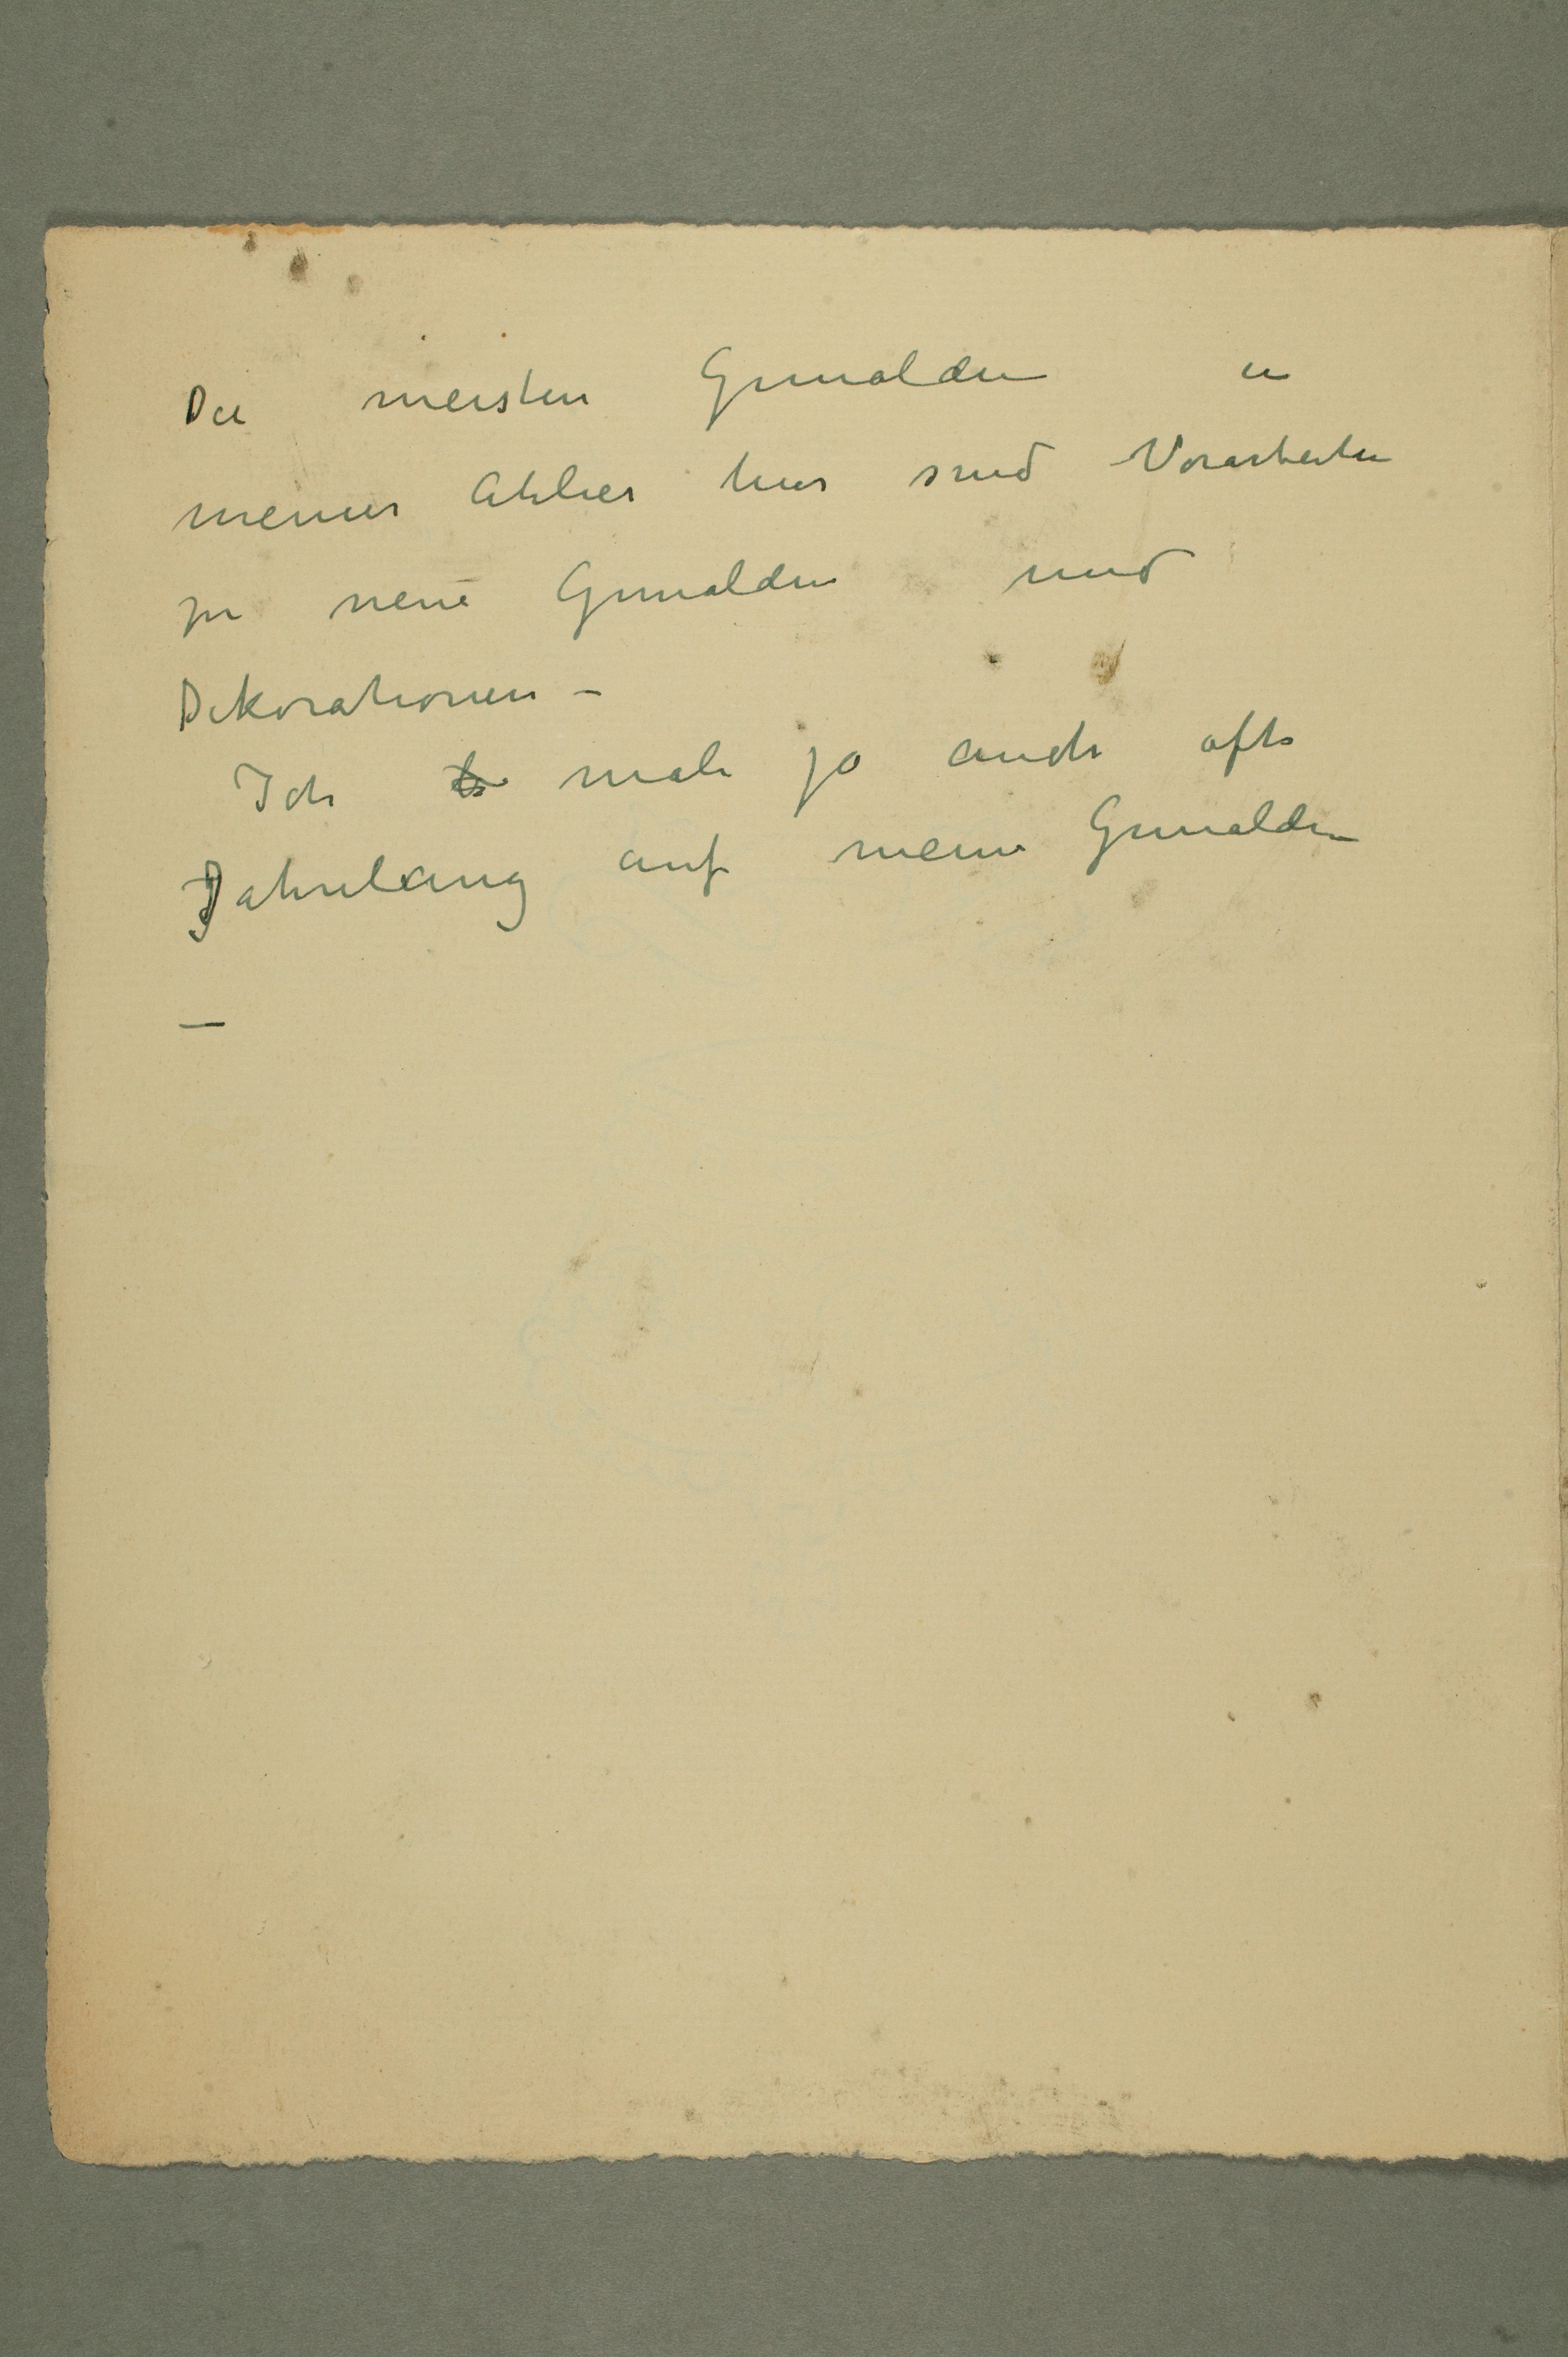 Die meisten Gemälden in
meiner Atelier hier sind Vorarbeiten
zu neue Gemälden und
Dekorationen –
Ich male ja auch ofte
Jahrelang auf meine Gemälden
—